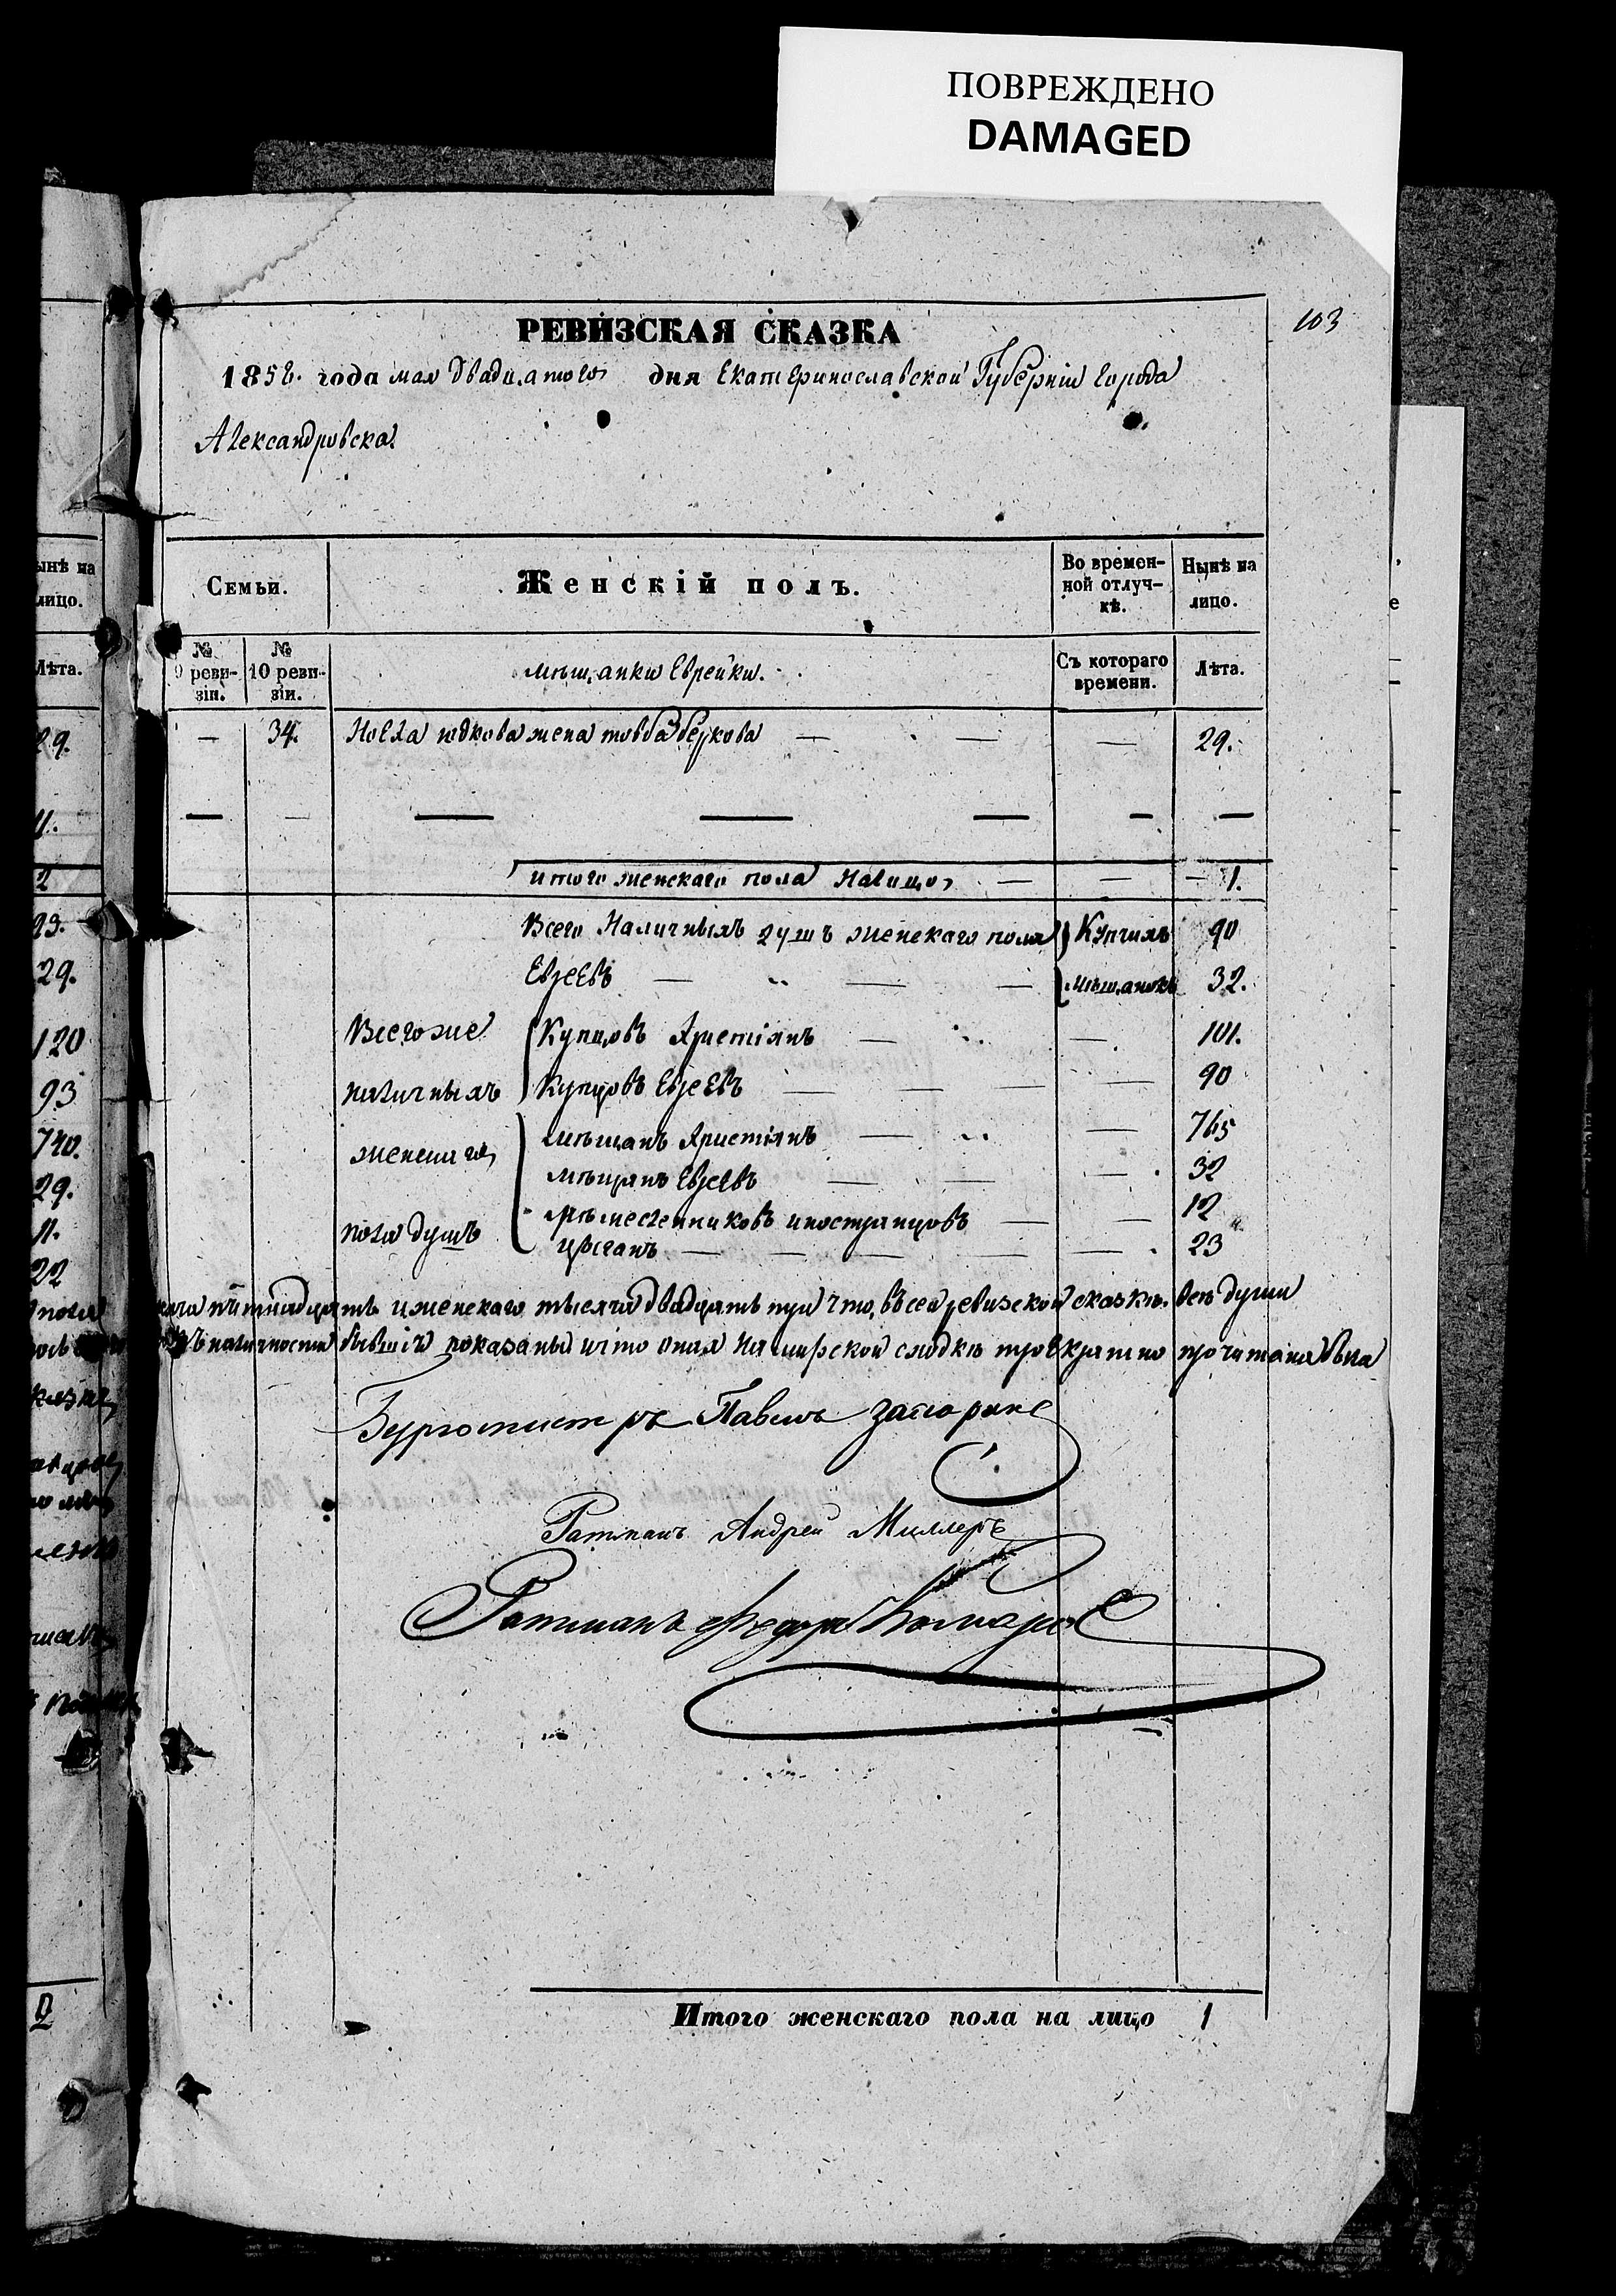 ПОВРЕЖДЕНО
DAMAGED
103
РЕВИЗСКАЯ СКАЗКА
1858. года мая двадцатого дня Екатеринославской Губерніи города
Александровска
ынѣ на лицо.
Семьи.
Женскій полъ.
Во временной отлучкѣ.
Нынѣ на лицо.
Лѣта.
№ 9 ревизіи.
№ 10 ревизіи.
мѣщанки Еврейки.
Съ котораго времени.
Лѣта.
29.
— 34. юдкова жена товба беркова — — — 29.
11.
2
итого женскаго пола налицо — — — 1.
93.
Всего Наличныхъ душъ женскаго пола } Купчихъ 90
29.
Евреевъ — — — } мѣщанокъ 32.
120
Всего же { Купцовъ Христіянъ — — 101.
93
наличныхъ Купцовъ Евреевъ — — — — 90
740.
мѣщанъ Христіянъ — — 765
женскаго
29.
мѣщанъ Евреевъ — — — 32
11.
иностранцовъ — — 12
пола душъ
22
цыганъ — — — — — 23
пятнадцать и женскаго тысяча двадцать три что, въ сей ревизской сказкѣ. всѣ души
въ наличности бывшіе показаны и что оная на мирской сходкѣ троекратно прочитана была
Бургомистръ Павелъ
Ратманъ Андрей Миллеръ
Ратманъ Федоръ
Итого женскаго пола на лицо 1